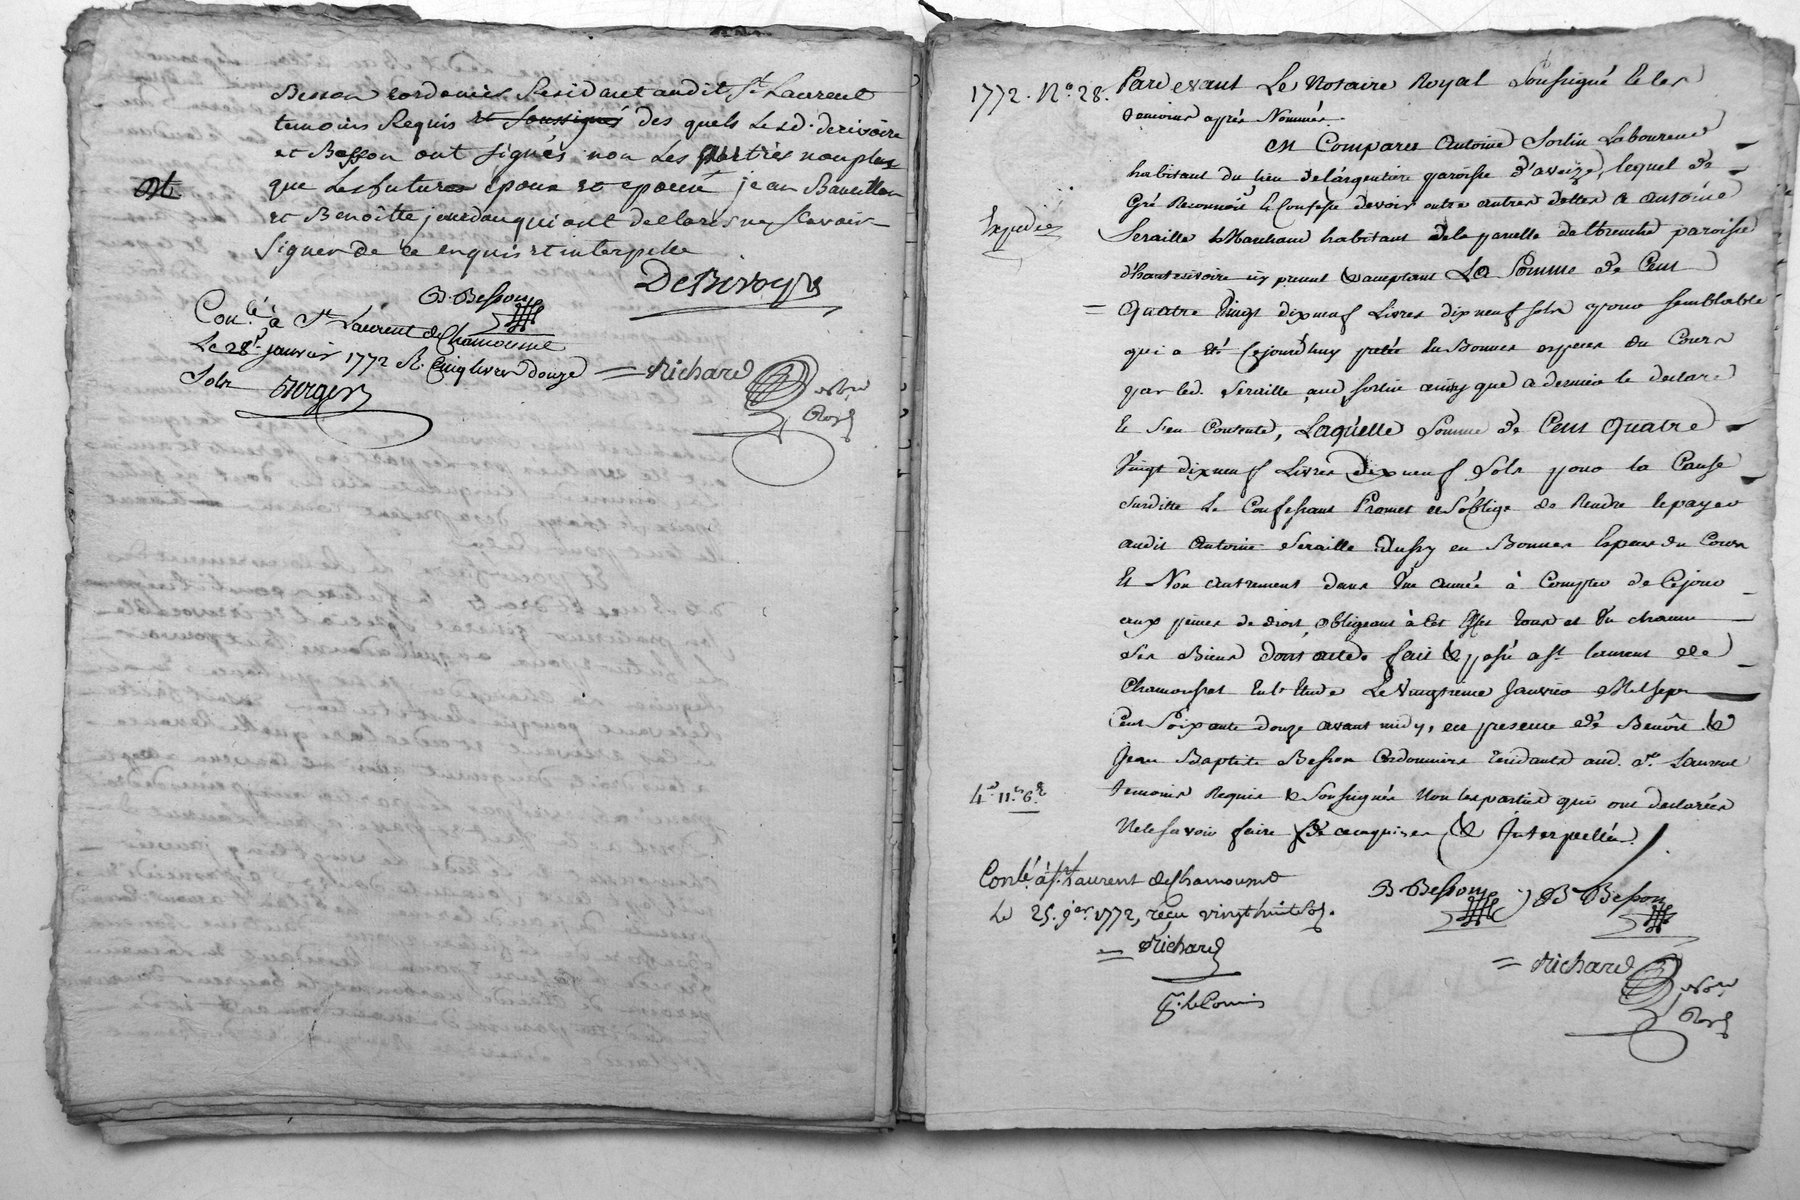 Besson cordonier Residant audit St Laurent
temoins Requis et soussignés des quels Le sd. derivoire
et Besson ont signés non Les parties non plus
que Les futurs epoux et epouse jean
et Benoitte jourdan qui ont declarés ne scavoir
signer de ce enquis et interpellé
B. Besson
DeRivoyre
Conlé à St Laurent de Chamousset
Le 28e janvier 1772 R. Cinq livres douze
Sols
Berger
Richard
Nore
Royl
1772. No. 28.
Pardevant Le Notaire Royal Soussigné & les
temoins après Nommés
Expediée
en Comparu Antoine Sorlin Laboureur
habitant du lieu de l'argentiere paroisse d'aveize, lequel de
Gré Reconnoit & Confesse devoir outre autres dettes a antoine
Seraille Marchand habitant de la paroisse
d'hauterivoire icy present & acceptant La Somme de Cent
Quatre Vingt dix neuf Livres dix neuf sols pour semblable
qui a été cejourd'huy pretée En Bonnes especes du Cours
par led. Seraille aud. Sorlin ainsy que ce dernier le declare
& s'en Contente, Laquelle Somme de Cent Quatre
Vingt dix neuf Livres dix neuf Sols pour la Cause
susditte Le Confessant Promet et S'oblige de Rendre & payer
audit Antoine Seraille Aussy en Bonnes Especes du Cours
Et Non autrement dans Une année à Compter de Cejour
aux peines de droit, obligeant à Cet Effet Tous et Un chacun
Ses Biens dont acte. fait & passé a St. laurent de
Chamousset En l'Etude Le Vingtieme Janvier Mil sept
Cent Soixante douze avant midy, en presence de Benoit &
Jean Baptiste Besson Cordonniers residants aud. St. Laurent
4.l 11.s 6.d
Temoins Requis & Soussignés Non les parties qui ont declarées
Ne le savoir faire de ce enquises & Interpellées.
Conlé à St Laurent de Chamousset
Le 25. jer. 1772, reçu vingt huit sols.
Richard
B. Besson
JB Besson
Richard
Nore
Royl